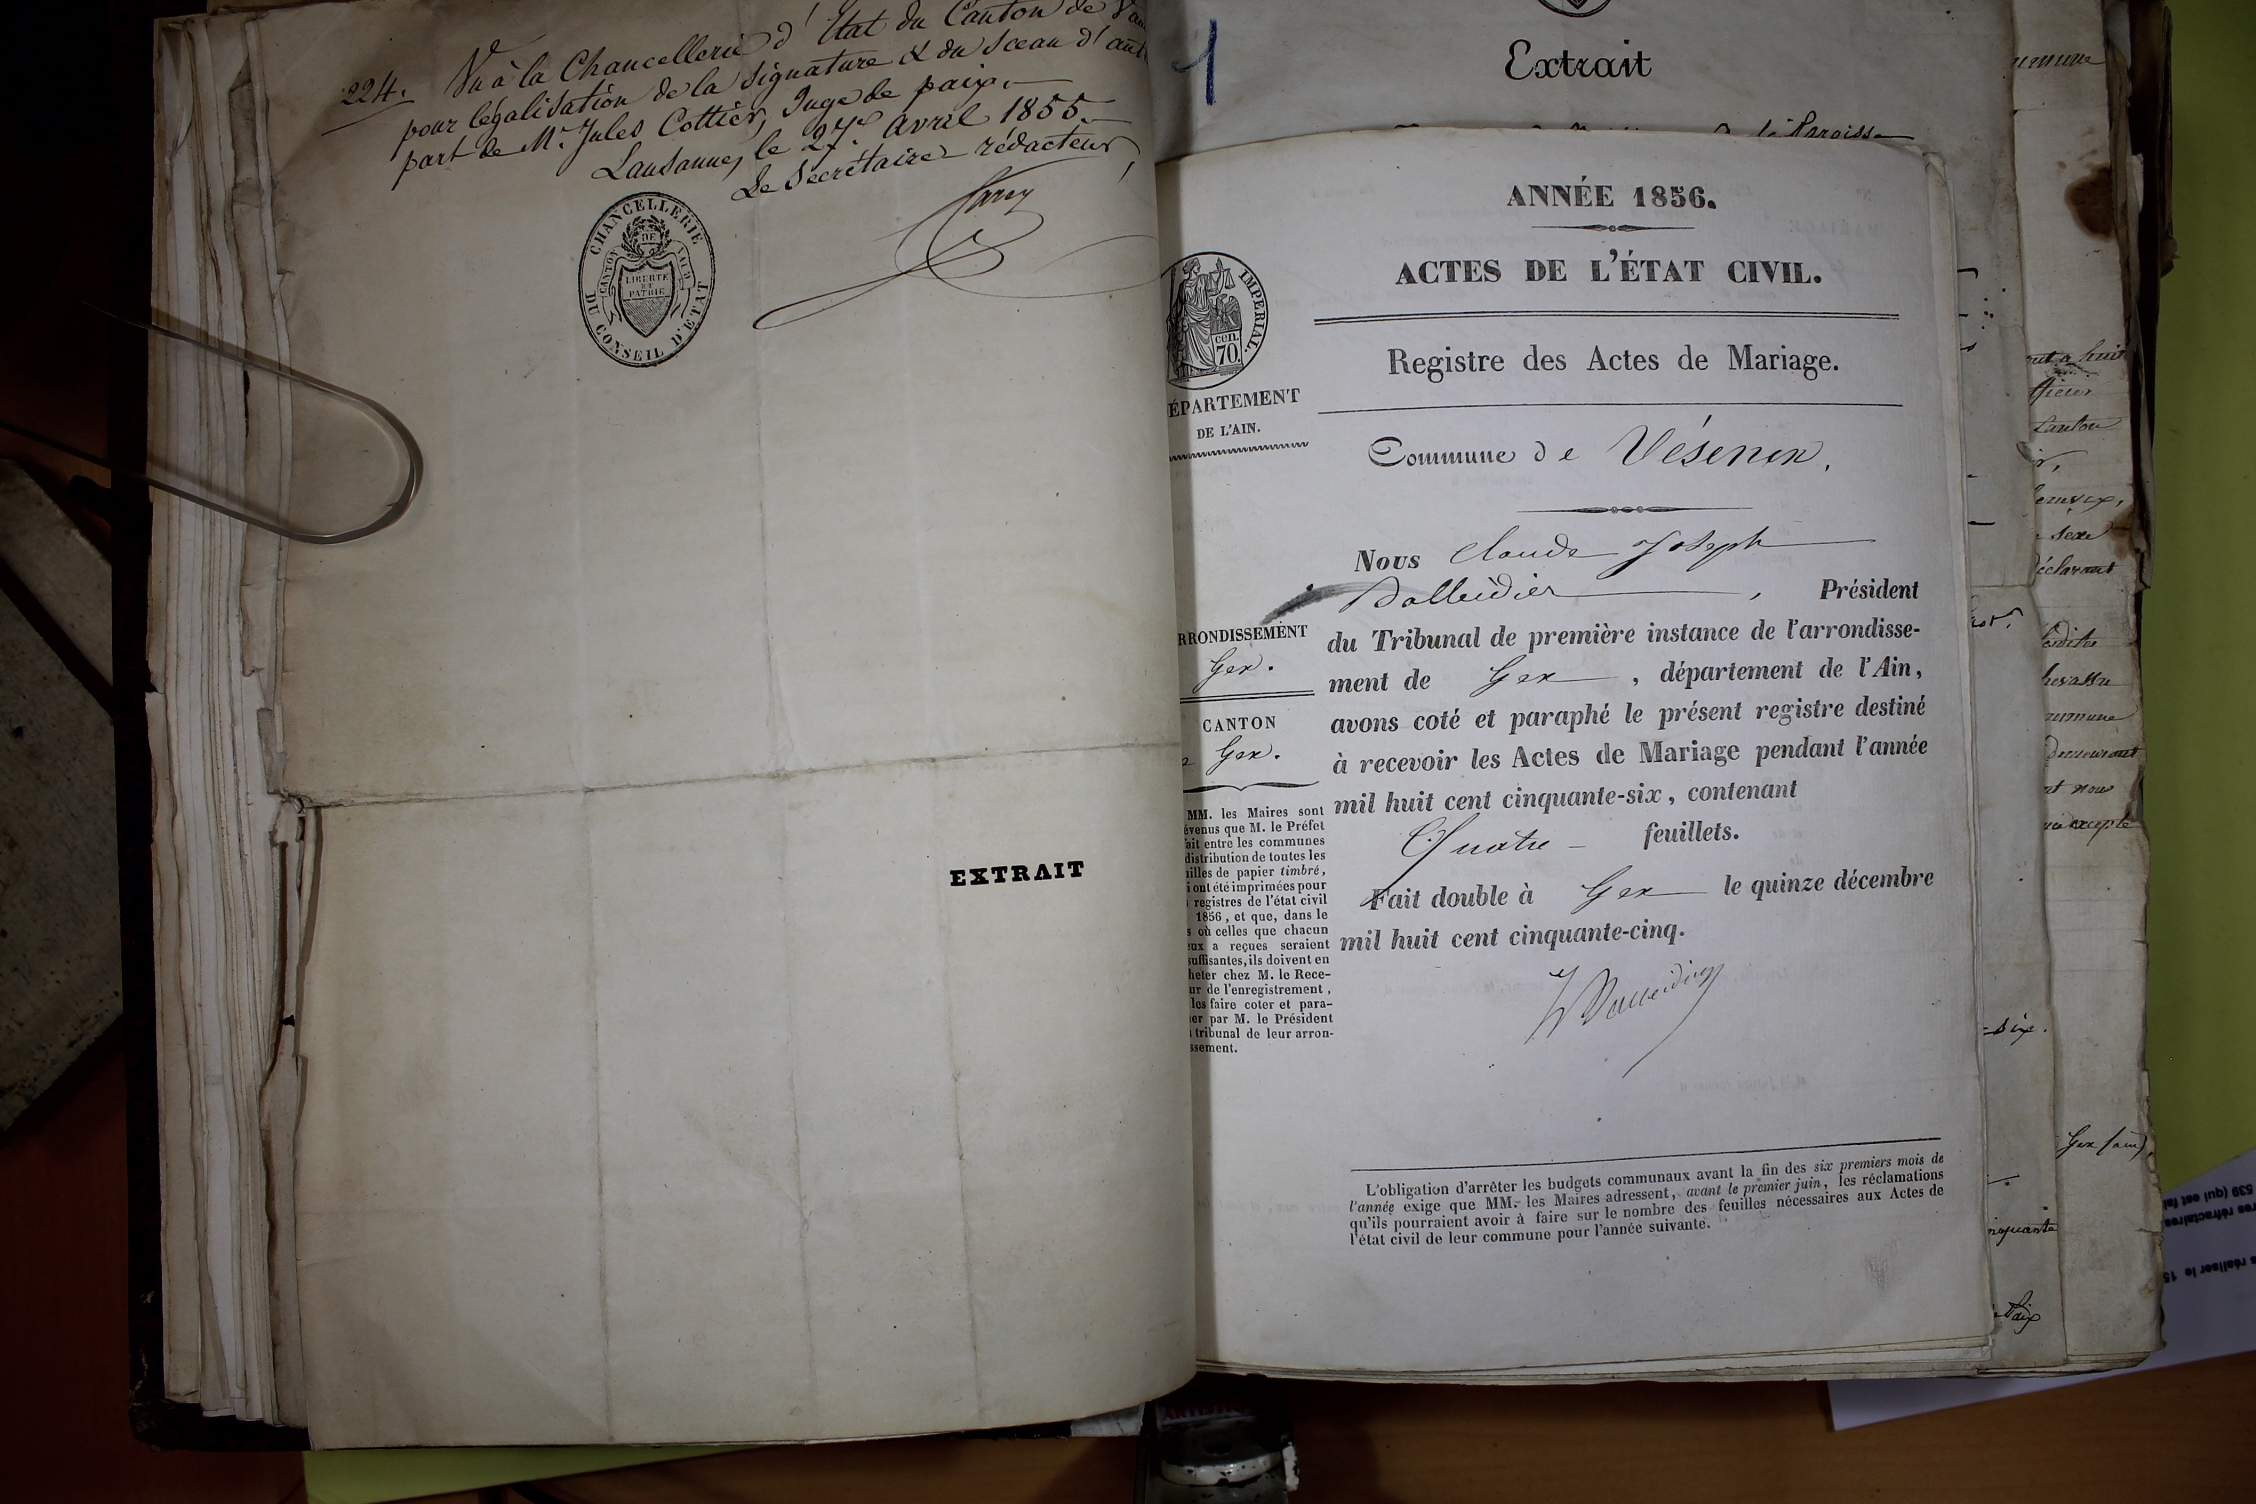 224. Vu à la Chancellerie d'Etat du Canton de Vau
pour légalisation de la signature & du sceau d'aut
part de Mr. Jules Cottier, Juge de paix.
Lausanne, le 27e avril 1855.
Le Secrétaire rédacteur,
CHANCELLERIE
DU CONSEIL D'ETAT
CANTON DE VAUD
LIBERTÉ
ET
PATRIE
EXTRAIT
1
Extrait
ANNÉE 1856.
ACTES DE L'ÉTAT CIVIL.
IMPERIAL.
CEN.
70.
Registre des Actes de Mariage.
ÉPARTEMENT
DE L'AIN.
Commune de Vésenex.
Nous Claude Joseph
, Président
du Tribunal de première instance de l'arrondisse-
ment de Gex, département de l'Ain,
avons coté et paraphé le présent registre destiné
à recevoir les Actes de Mariage pendant l'année
mil huit cent cinquante-six, contenant
Quatre feuillets.
Fait double à Gex le quinze décembre
mil huit cent cinquante-cinq.
RRONDISSEMENT
Gex.
CANTON
Gex.
MM. les Maires sont
évenus que M. le Préfet
ait entre les communes
distribution de toutes les
uilles de papier timbré,
i ont été imprimées pour
registres de l'état civil
1856, et que, dans le
s où celles que chacun
eux a reçues seraient
suffisantes, ils doivent en
heter chez M. le Rece-
ur de l'enregistrement,
les faire coter et para-
er par M. le Président
tribunal de leur arron-
ssement.
L'obligation d'arrêter les budgets communaux avant la fin des six premiers mois de
l'année exige que MM. les Maires adressent, avant le premier juin, les réclamations
qu'ils pourraient avoir à faire sur le nombre des feuilles nécessaires aux Actes de
l'état civil de leur commune pour l'année suivante.